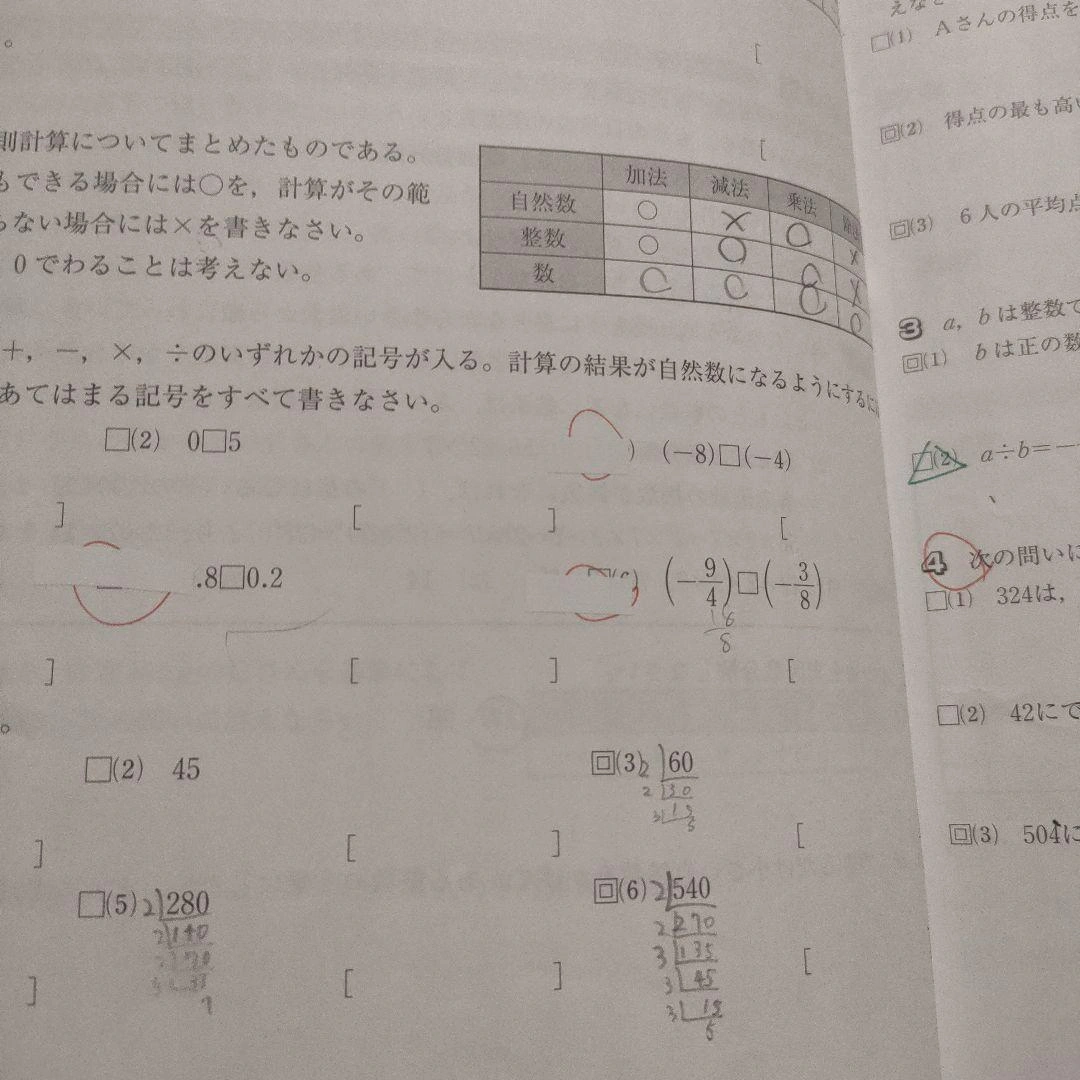 。
則計算についてまとめたものである。
もできる場合には○を，計算がその範
らない場合には×を書きなさい。
0でわることは考えない。
加法 減法 乗法
自然数 ○ × ○ ×
整数 ○ ○ ○ ×
数 ○ ○ ○ ○
＋，－，×，÷のいずれかの記号が入る。計算の結果が自然数になるようにするに
あてはまる記号をすべて書きなさい。
□(2) 0□5
) (−8)□(−4)
] [ ] [
.8□0.2
(−9/4)□(−3/8)
18
8
] [ ] [
。
□(2) 45
回(3) 2 60
2 30
3 15
5
] [ ] [
□(5) 2 280
2 140
2 70
7
回(6) 2 540
2 270
3 135
3 45
3 15
5
] [ ] [
□(1) Aさんの得点を
回(2) 得点の最も高い
回(3) 6人の平均点
3 a，bは整数で
回(1) bは正の数
□(2) a÷b＝−
4 次の問いに
□(1) 324は，
□(2) 42にで
回(3) 504に